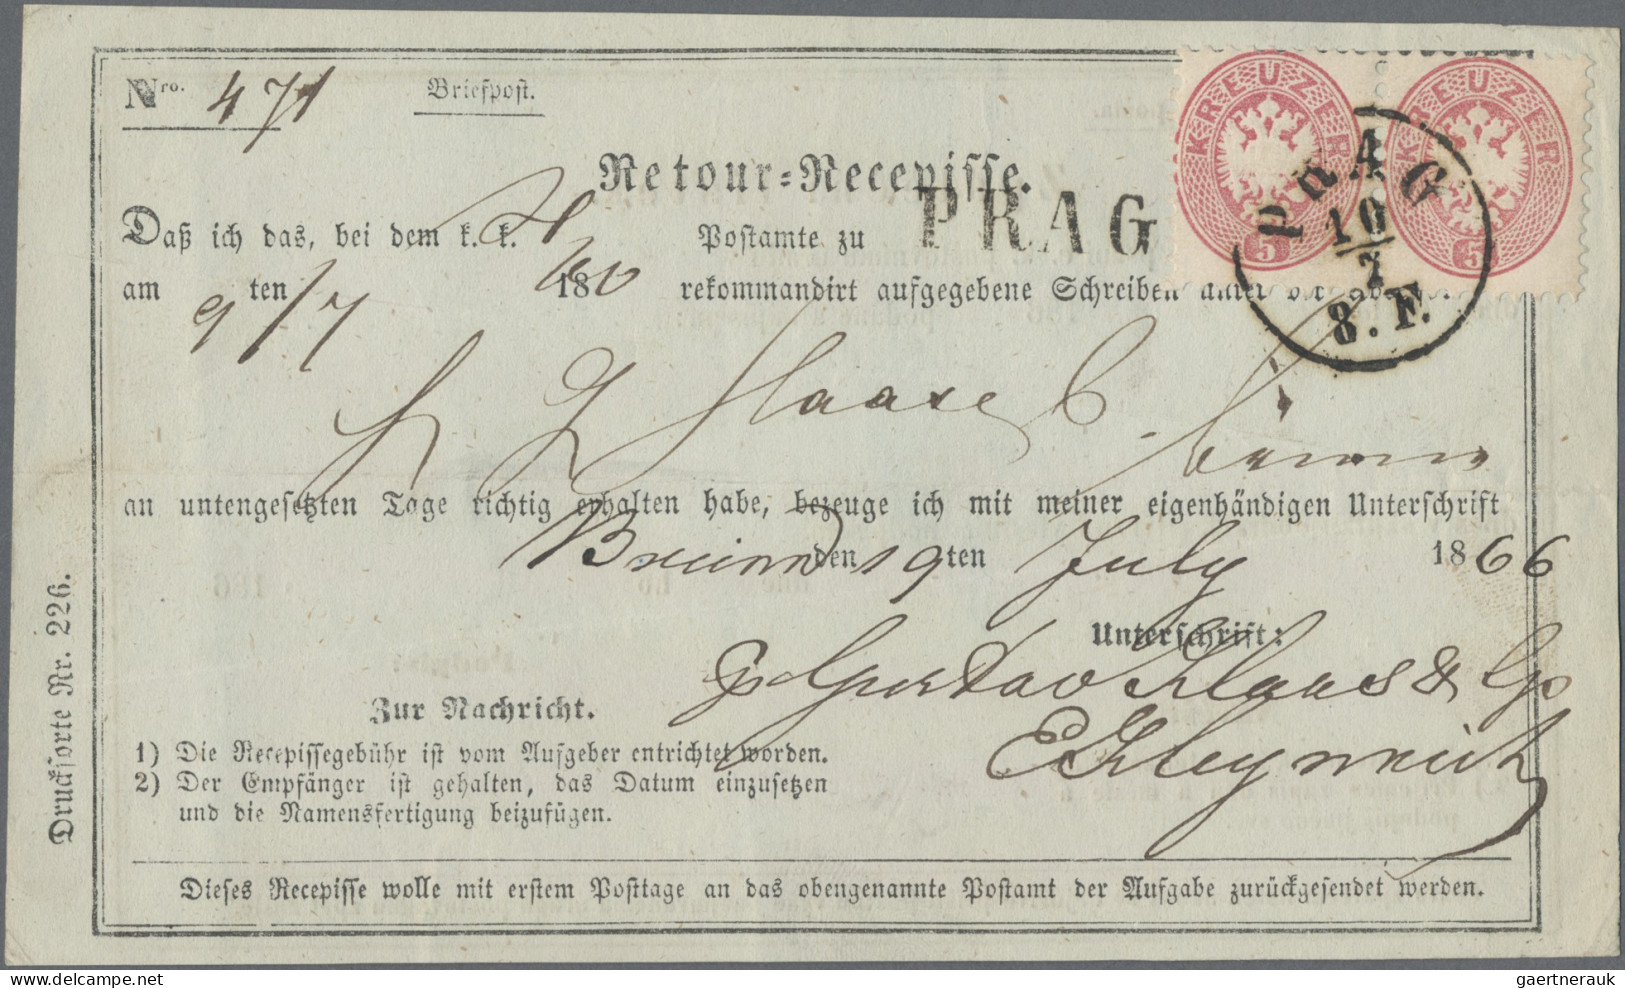 Nro. 471 Briefpost.
KREUZER KREUZER
5 5
PRAG
10/7
8. F.
Retour-Recepisse.
Daß ich das, bei dem k. k. Postamte zu PRAG
am 9/7 ten 186 rekommandirt aufgegebene Schreiben unter der
Haase
an untengesetzten Tage richtig erhalten habe, bezeuge ich mit meiner eigenhändigen Unterschrift
Bruinn den 19ten July 1866
Unterschrift:
Gustav Haas & Co
Zur Nachricht.
1) Die Recepissegebühr ist vom Aufgeber entrichtet worden.
2) Der Empfänger ist gehalten, das Datum einzusetzen
und die Namensfertigung beizufügen.
Dieses Recepisse wolle mit erstem Posttage an das obengenannte Postamt der Aufgabe zurückgesendet werden.
Drucksorte Nr. 226.
gaertnerauk